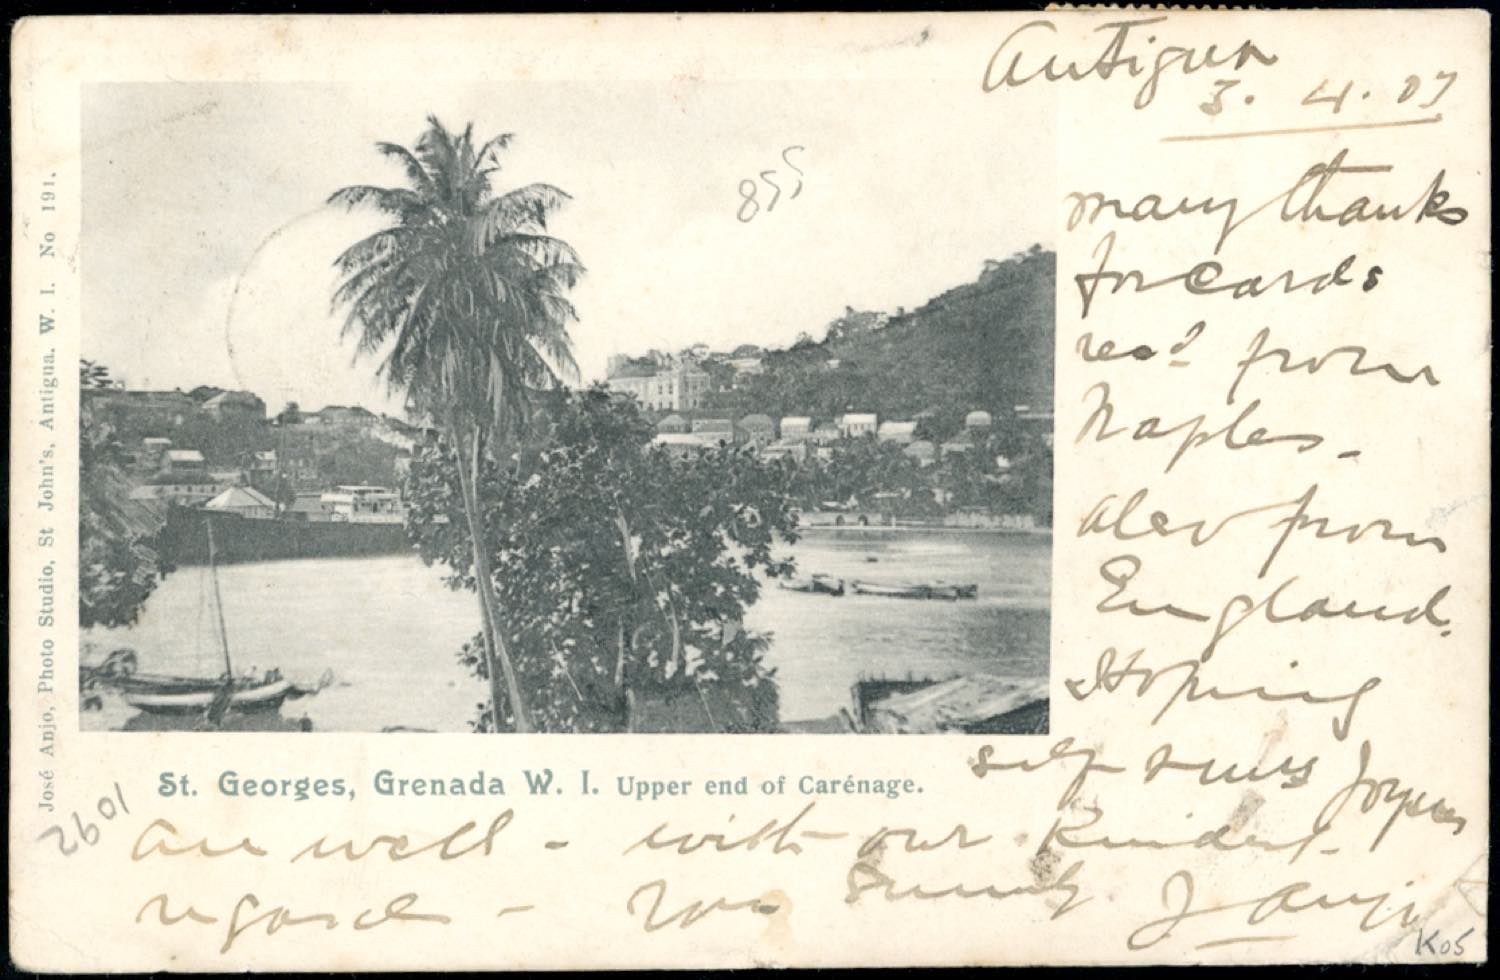 Antigua
3. 4. 07
many thanks
for cards
recd from
Naples -
also from
England.
Hoping
self &
are well - with our kindest
regards -
J Anjo
855
José Anjo, Photo Studio, St John's, Antigua. W. I. No 191.
St. Georges, Grenada W. I. Upper end of Carénage.
2601
K05